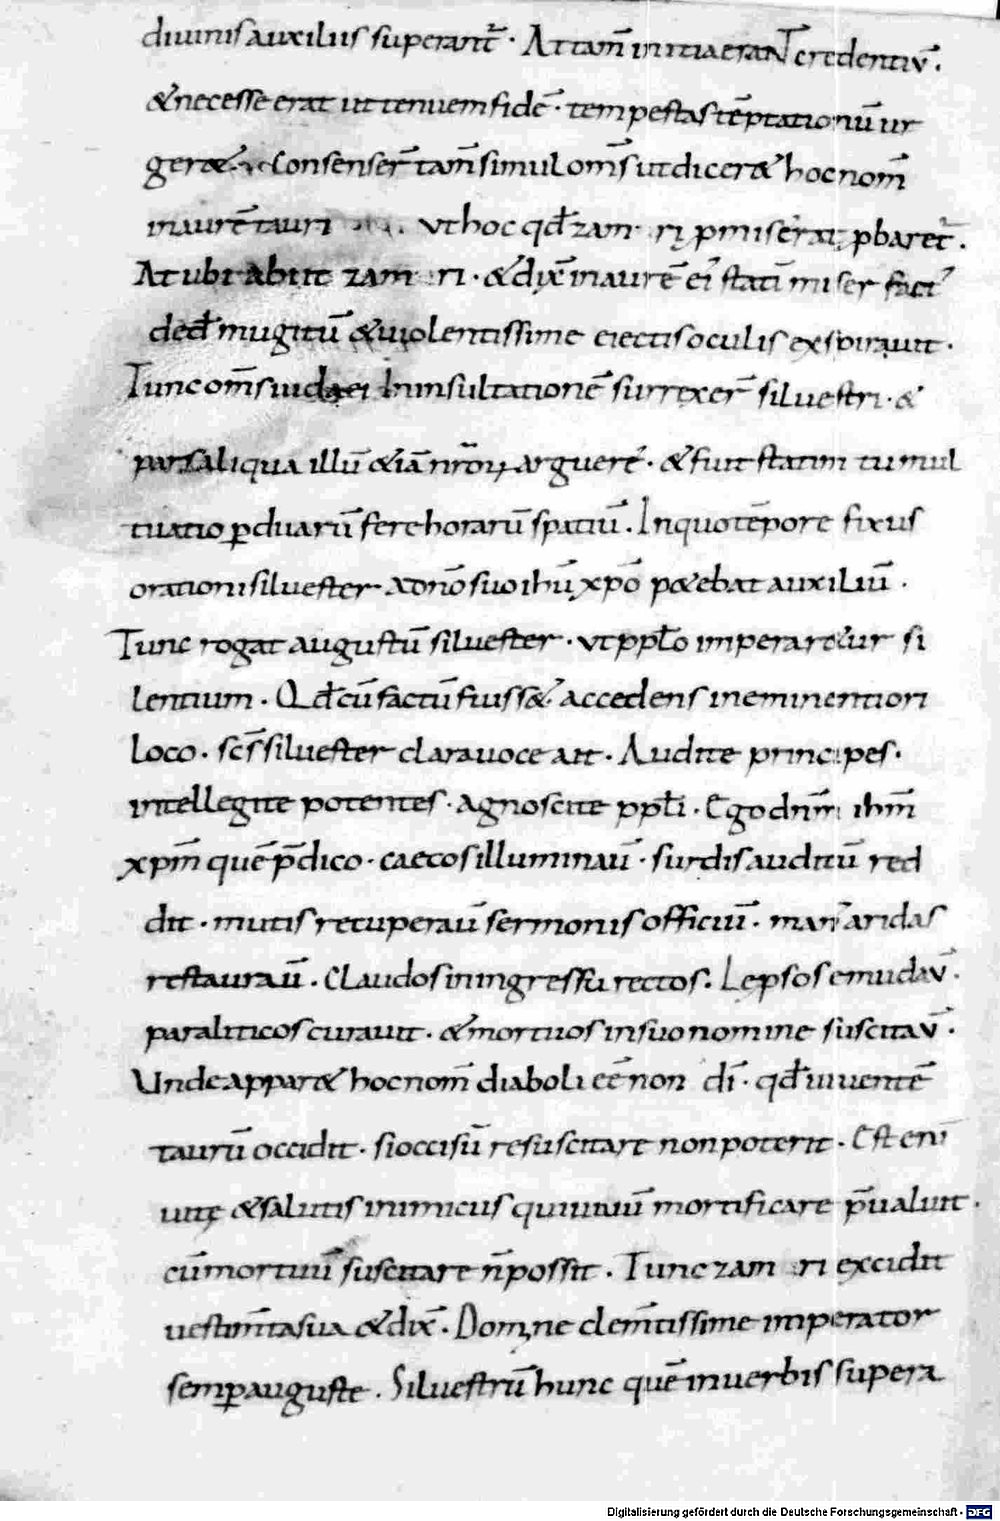 diuinis auxiliis superant̄ · At tam̄ initia eraNT credentiū .
& necesse erat ut tenuem fidē · tempestas tēptationū ur
ger& · Consenser̄ tam̄ simul om̄s ut dicer& hoc nom̄
in aurē tauri ut hoc qđ zam ri p̱miserat ꝓbaret̄ .
At ubi abiit zam ri · & dix̄ in aurē ei᾽ statī miser fact᾽
dedꝰ mugitū & uiolentissime eiectis oculis exspirauit ·
Tunc om̄s iudaei In insultationē surrexer̄ siluestri · &
pars aliqua illū & iā nr̄oꝝ arguere᾽ · & fuit statim tumul
tuatio ꝑ duarū fere horarū spatiū . In quo tēpore fixus
orationi siluester a dn̄o suo ih̄u xp̄o p&ebat auxiliū .
Tunc rogat augustū siluester · ut ppl̄o imperaretur si
lentium · Qđ cū factū fuiss& accedens in eminentiori
loco · sc̄s siluester clara uoce ait · Audite principes ·
intellegite potentes · agnoscite ppl̄i · Ego dn̄m ih̄m
xp̄m quē p̄dico · caecos illuminau᾽ · surdis auditū red
dit · mutis recuperau᾽ sermonis officiū · man᾽ aridas
restaurau᾽ . Claudos in ingressu rectos . Leprosos emūdau᾽ ·
paraliticos curauit · & mortuos in suo nomine suscitau᾽ ·
Unde appar& hoc nom̄ diaboli eē non dī · qđ uiuentē
taurū occidit · si occisū resuscitare non poterit · Est eni᾽
uitę & salutis inimicus qui uiuū mortificare p̄ualuit ·
cū mortuū suscitare n̄ possit . Tunc zam ri excidit
uestim̄ta sua & dix̄ · Domne clem̄tissime imperator
semꝑ auguste . Siluestrū hunc quē in uerbis supera
Digitalisierung gefördert durch die Deutsche Forschungsgemeinschaft - DFG